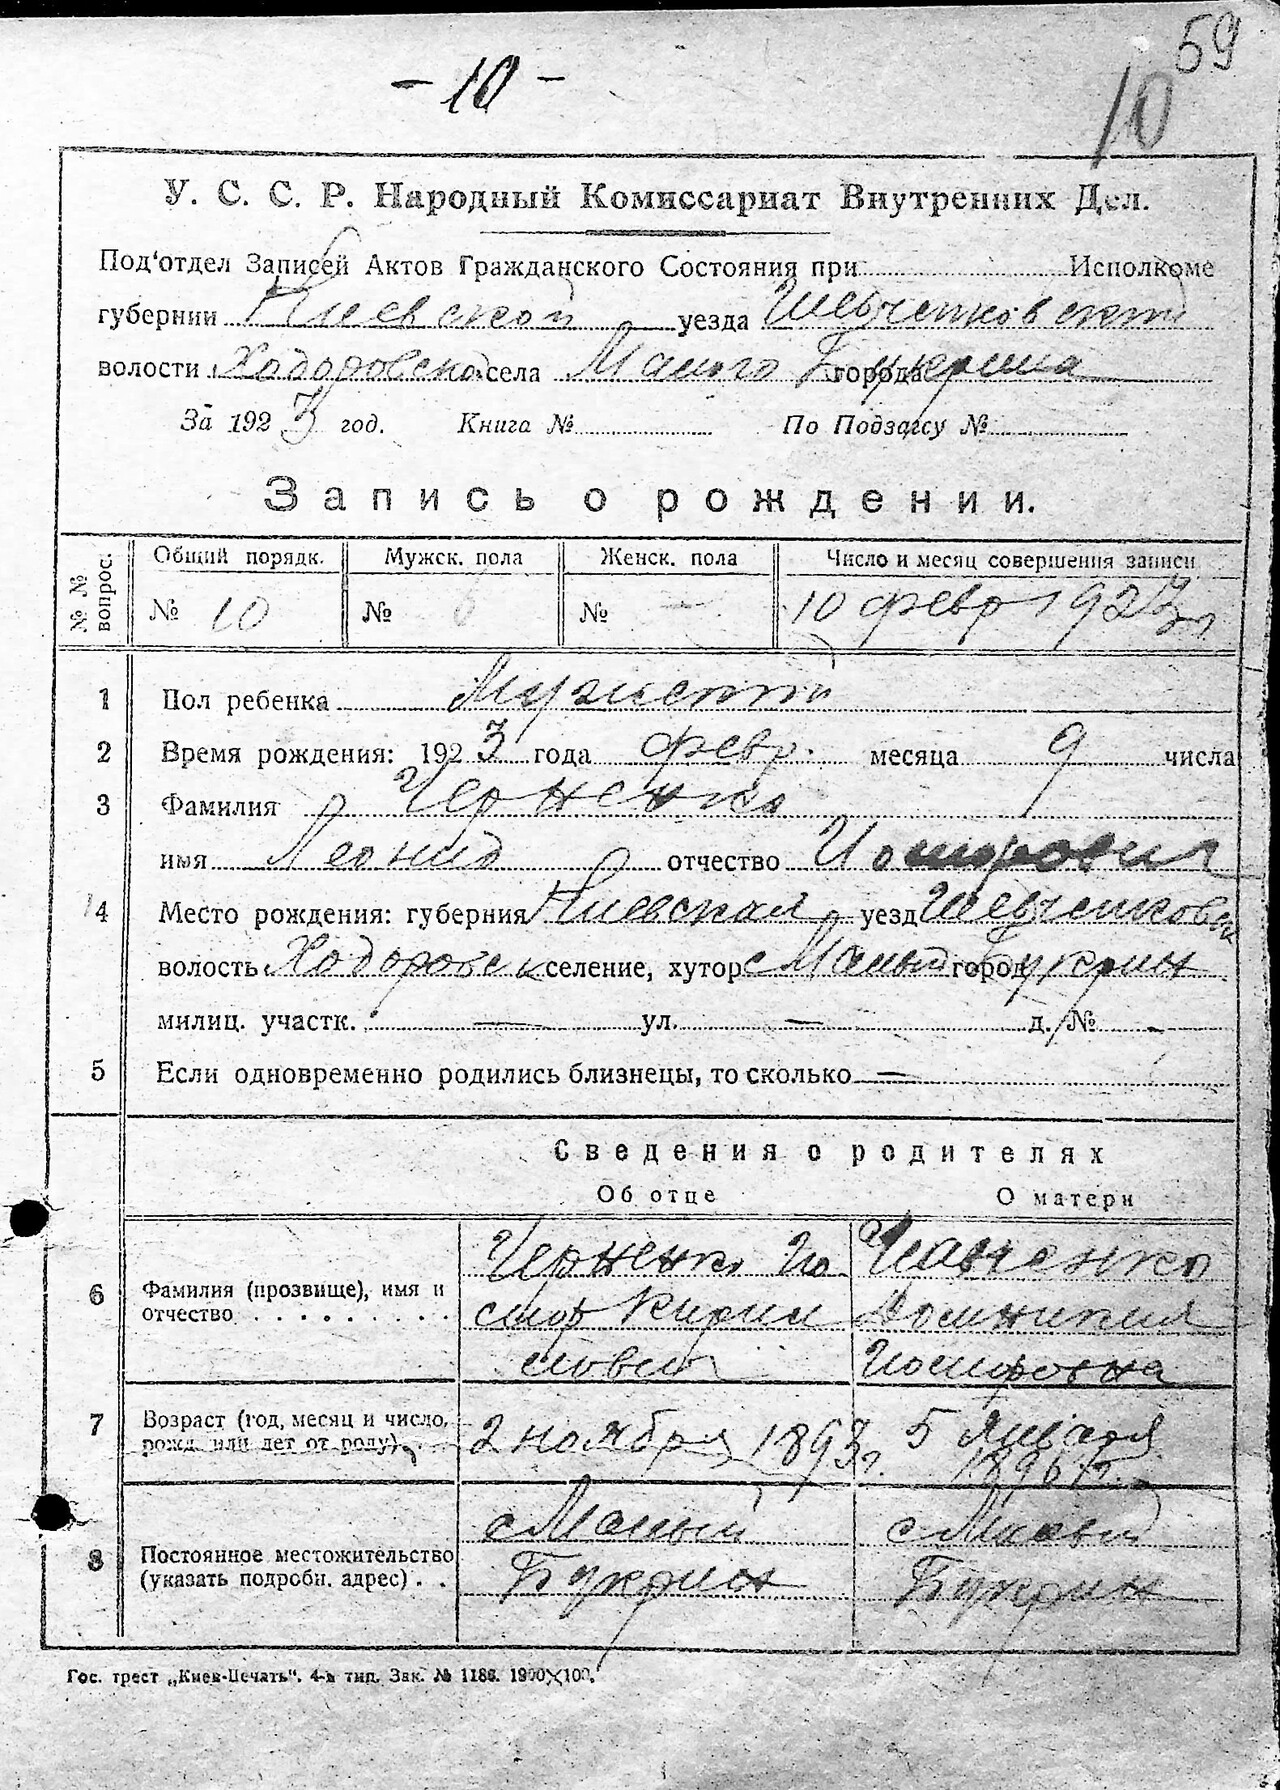 59
- 10 -
10
У. С. С. Р. Народный Комиссариат Внутренних Дел.
Под'отдел Записей Актов Гражданского Состояния при Исполкоме
губернии Киевской уезда Шевченковский
волости Ходоровской села Малого города Букрина
За 1923 год. Книга № По Подзагсу №
Запись о рождении.
№ № вопрос. Общий порядк. Мужск. пола Женск. пола Число и месяц совершения записи
№ 10 № 6 № - 10 февр 1923 г
1 Пол ребенка Мужской
2 Время рождения: 1923 года февр. месяца 9 числа
3 Фамилия Черненко
имя Леонид отчество
4 Место рождения: губерния Киевская уезд Шевченковск
волость Ходоровск селение, хутор с Малый город Букрин
милиц. участк. — ул. — д. № -
5 Если одновременно родились близнецы, то сколько —
Сведения о родителях
Об отце О матери
6 Фамилия (прозвище), имя и отчество Черненко Ио Савченко
сиф Кирил Домникия
лович Иосифовна
7 Возраст (год, месяц и число, рожд. или лет от роду) 2 ноября 1893 г. 5 января
1896 г.
8 Постоянное местожительство (указать подробн. адрес) с Малый с Малый
Букрин Букрин
Гос. трест „Киев-Печать". 4-я тип. Зак. № 1186. 1900×100.